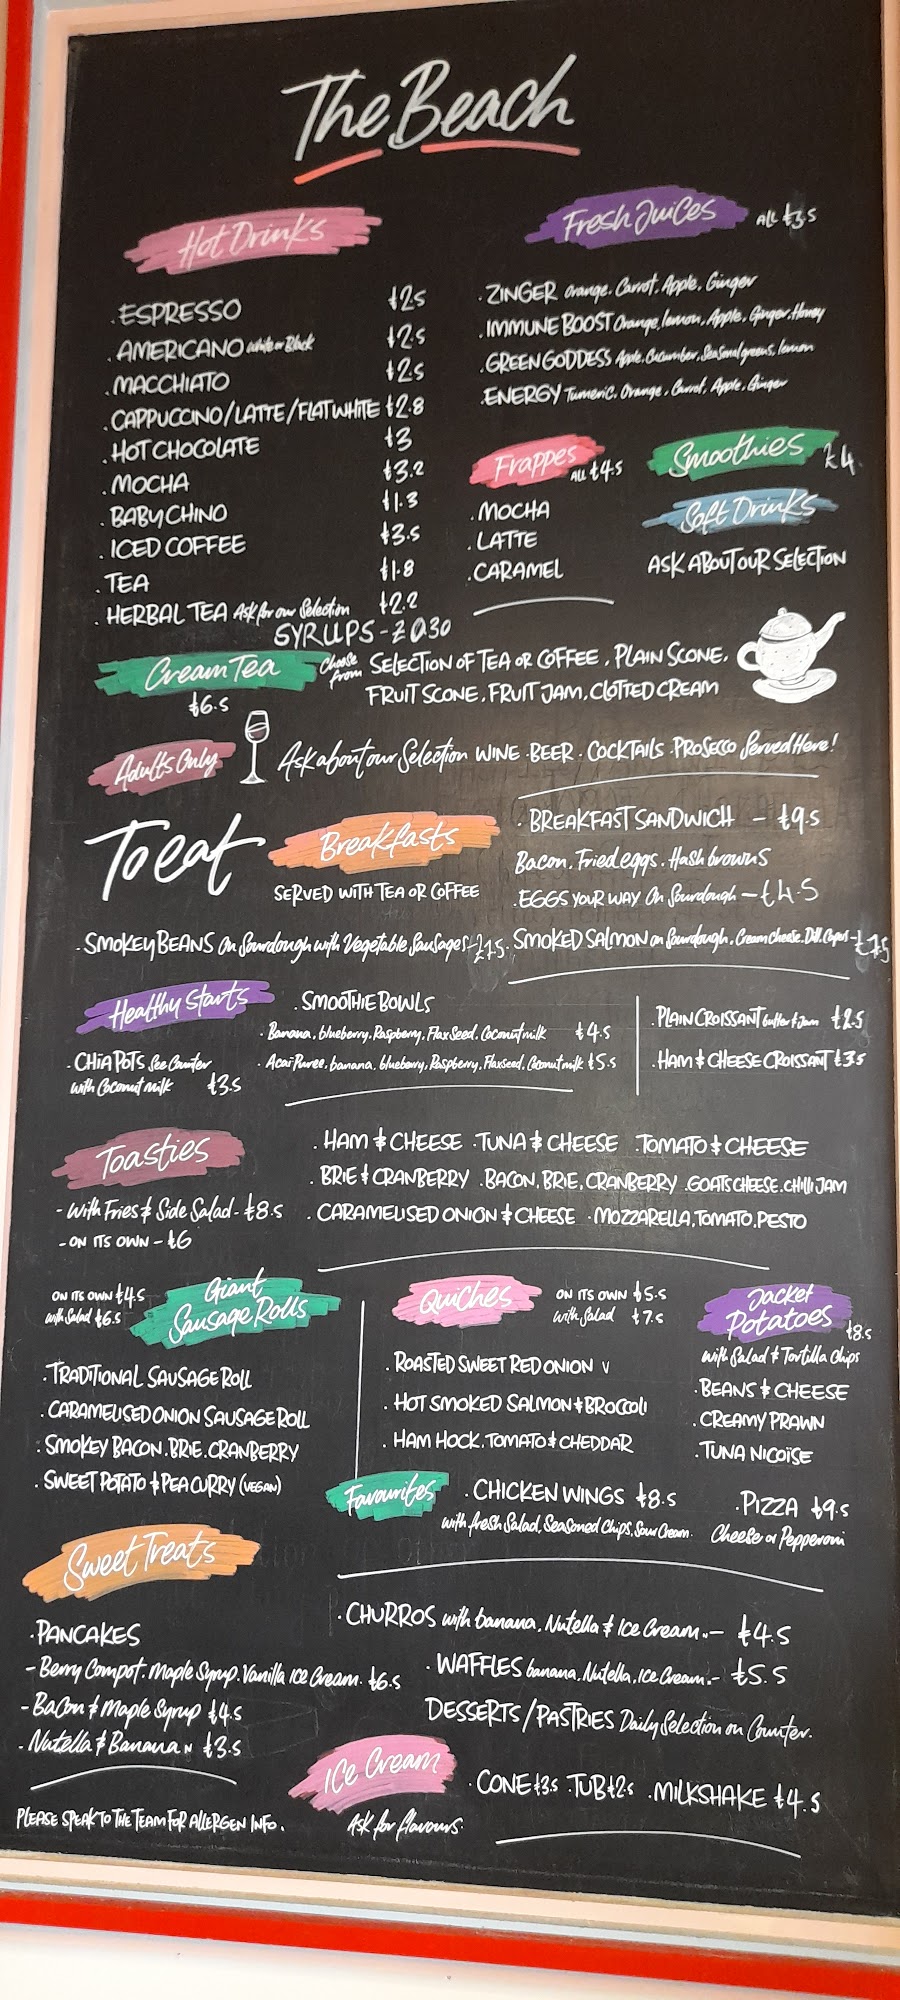 The Beach
Hot Drinks
. ESPRESSO £2.5
. AMERICANO White or Black £2.5
. MACCHIATO £2.5
. CAPPUCCINO/LATTE/FLAT WHITE £2.8
. HOT CHOCOLATE £3
. MOCHA £3.2
. BABYCHINO £1.3
. ICED COFFEE £3.5
. TEA £1.8
. HERBAL TEA Ask for our Selection £2.2
SYRUPS - £0.30
Fresh Juices ALL £3.5
. ZINGER Orange. Carrot. Apple. Ginger
. IMMUNE BOOST Orange, lemon, Apple, Ginger. Honey
. GREEN GODDESS Apple. Cucumber. Seasonal greens, lemon
. ENERGY Tumeric. Orange. Carrot, Apple. Ginger
Frappes ALL £4.5
. MOCHA
. LATTE
. CARAMEL
Smoothies £4
Soft Drinks
ASK ABOUT OUR SELECTION
Cream Tea
£6.5
Choose from SELECTION OF TEA OR COFFEE, PLAIN SCONE,
FRUIT SCONE, FRUIT JAM, CLOTTED CREAM
Adults Only
Ask about our Selection WINE . BEER . COCKTAILS . PROSECCO Served Here!
To eat
Breakfasts
SERVED WITH TEA OR COFFEE
. BREAKFAST SANDWICH - £9.5
Bacon. Fried eggs. Hash browns
. EGGS YOUR WAY On Sourdough - £4.5
. SMOKEY BEANS on Sourdough with Vegetable Sausages - £7.5
. SMOKED SALMON on Sourdough, Cream Cheese. Dill. Capers - £7.5
Healthy Starts
. CHIA POTS See Counter
with Coconut milk £3.5
. SMOOTHIE BOWLS
. Banana, blueberry, Raspberry, Flax Seed, Coconut milk £4.5
. Acai Puree, banana, blueberry, Raspberry, Flaxseed, Coconut milk £5.5
. PLAIN CROISSANT butter & Jam £2.5
. HAM & CHEESE CROISSANT £3.5
Toasties
- With Fries & Side Salad - £8.5
- ON ITS OWN - £6
. HAM & CHEESE . TUNA & CHEESE . TOMATO & CHEESE
. BRIE & CRANBERRY . BACON, BRIE, CRANBERRY . GOATS CHEESE. CHILLI JAM
. CARAMELISED ONION & CHEESE . MOZZARELLA, TOMATO, PESTO
ON ITS OWN £4.5
with Salad £6.5
Giant
Sausage Rolls
. TRADITIONAL SAUSAGE ROLL
. CARAMELISED ONION SAUSAGE ROLL
. SMOKEY BACON. BRIE. CRANBERRY
. SWEET POTATO & PEA CURRY (VEGAN)
Quiches
ON ITS OWN £5.5
with Salad £7.5
. ROASTED SWEET RED ONION V
. HOT SMOKED SALMON & BROCCOLI
. HAM HOCK. TOMATO & CHEDDAR
Jacket
Potatoes £8.5
with Salad & Tortilla Chips
. BEANS & CHEESE
. CREAMY PRAWN
. TUNA NICOISE
Favourites
. CHICKEN WINGS £8.5
with fresh Salad, Seasoned Chips, Sour Cream
. PIZZA £9.5
Cheese or Pepperoni
Sweet Treats
. PANCAKES
- Berry Compot. Maple Syrup. Vanilla Ice Cream. £6.5
- Bacon & Maple Syrup £4.5
- Nutella & Banana N £3.5
. CHURROS with banana, Nutella & Ice Cream.- £4.5
. WAFFLES banana, Nutella, Ice Cream.- £5.5
DESSERTS/PASTRIES Daily Selection on Counter.
Ice Cream
Ask for flavours.
. CONE £3.5 . TUB £2.5 . MILKSHAKE £4.5
PLEASE SPEAK TO THE TEAM FOR ALLERGEN INFO.